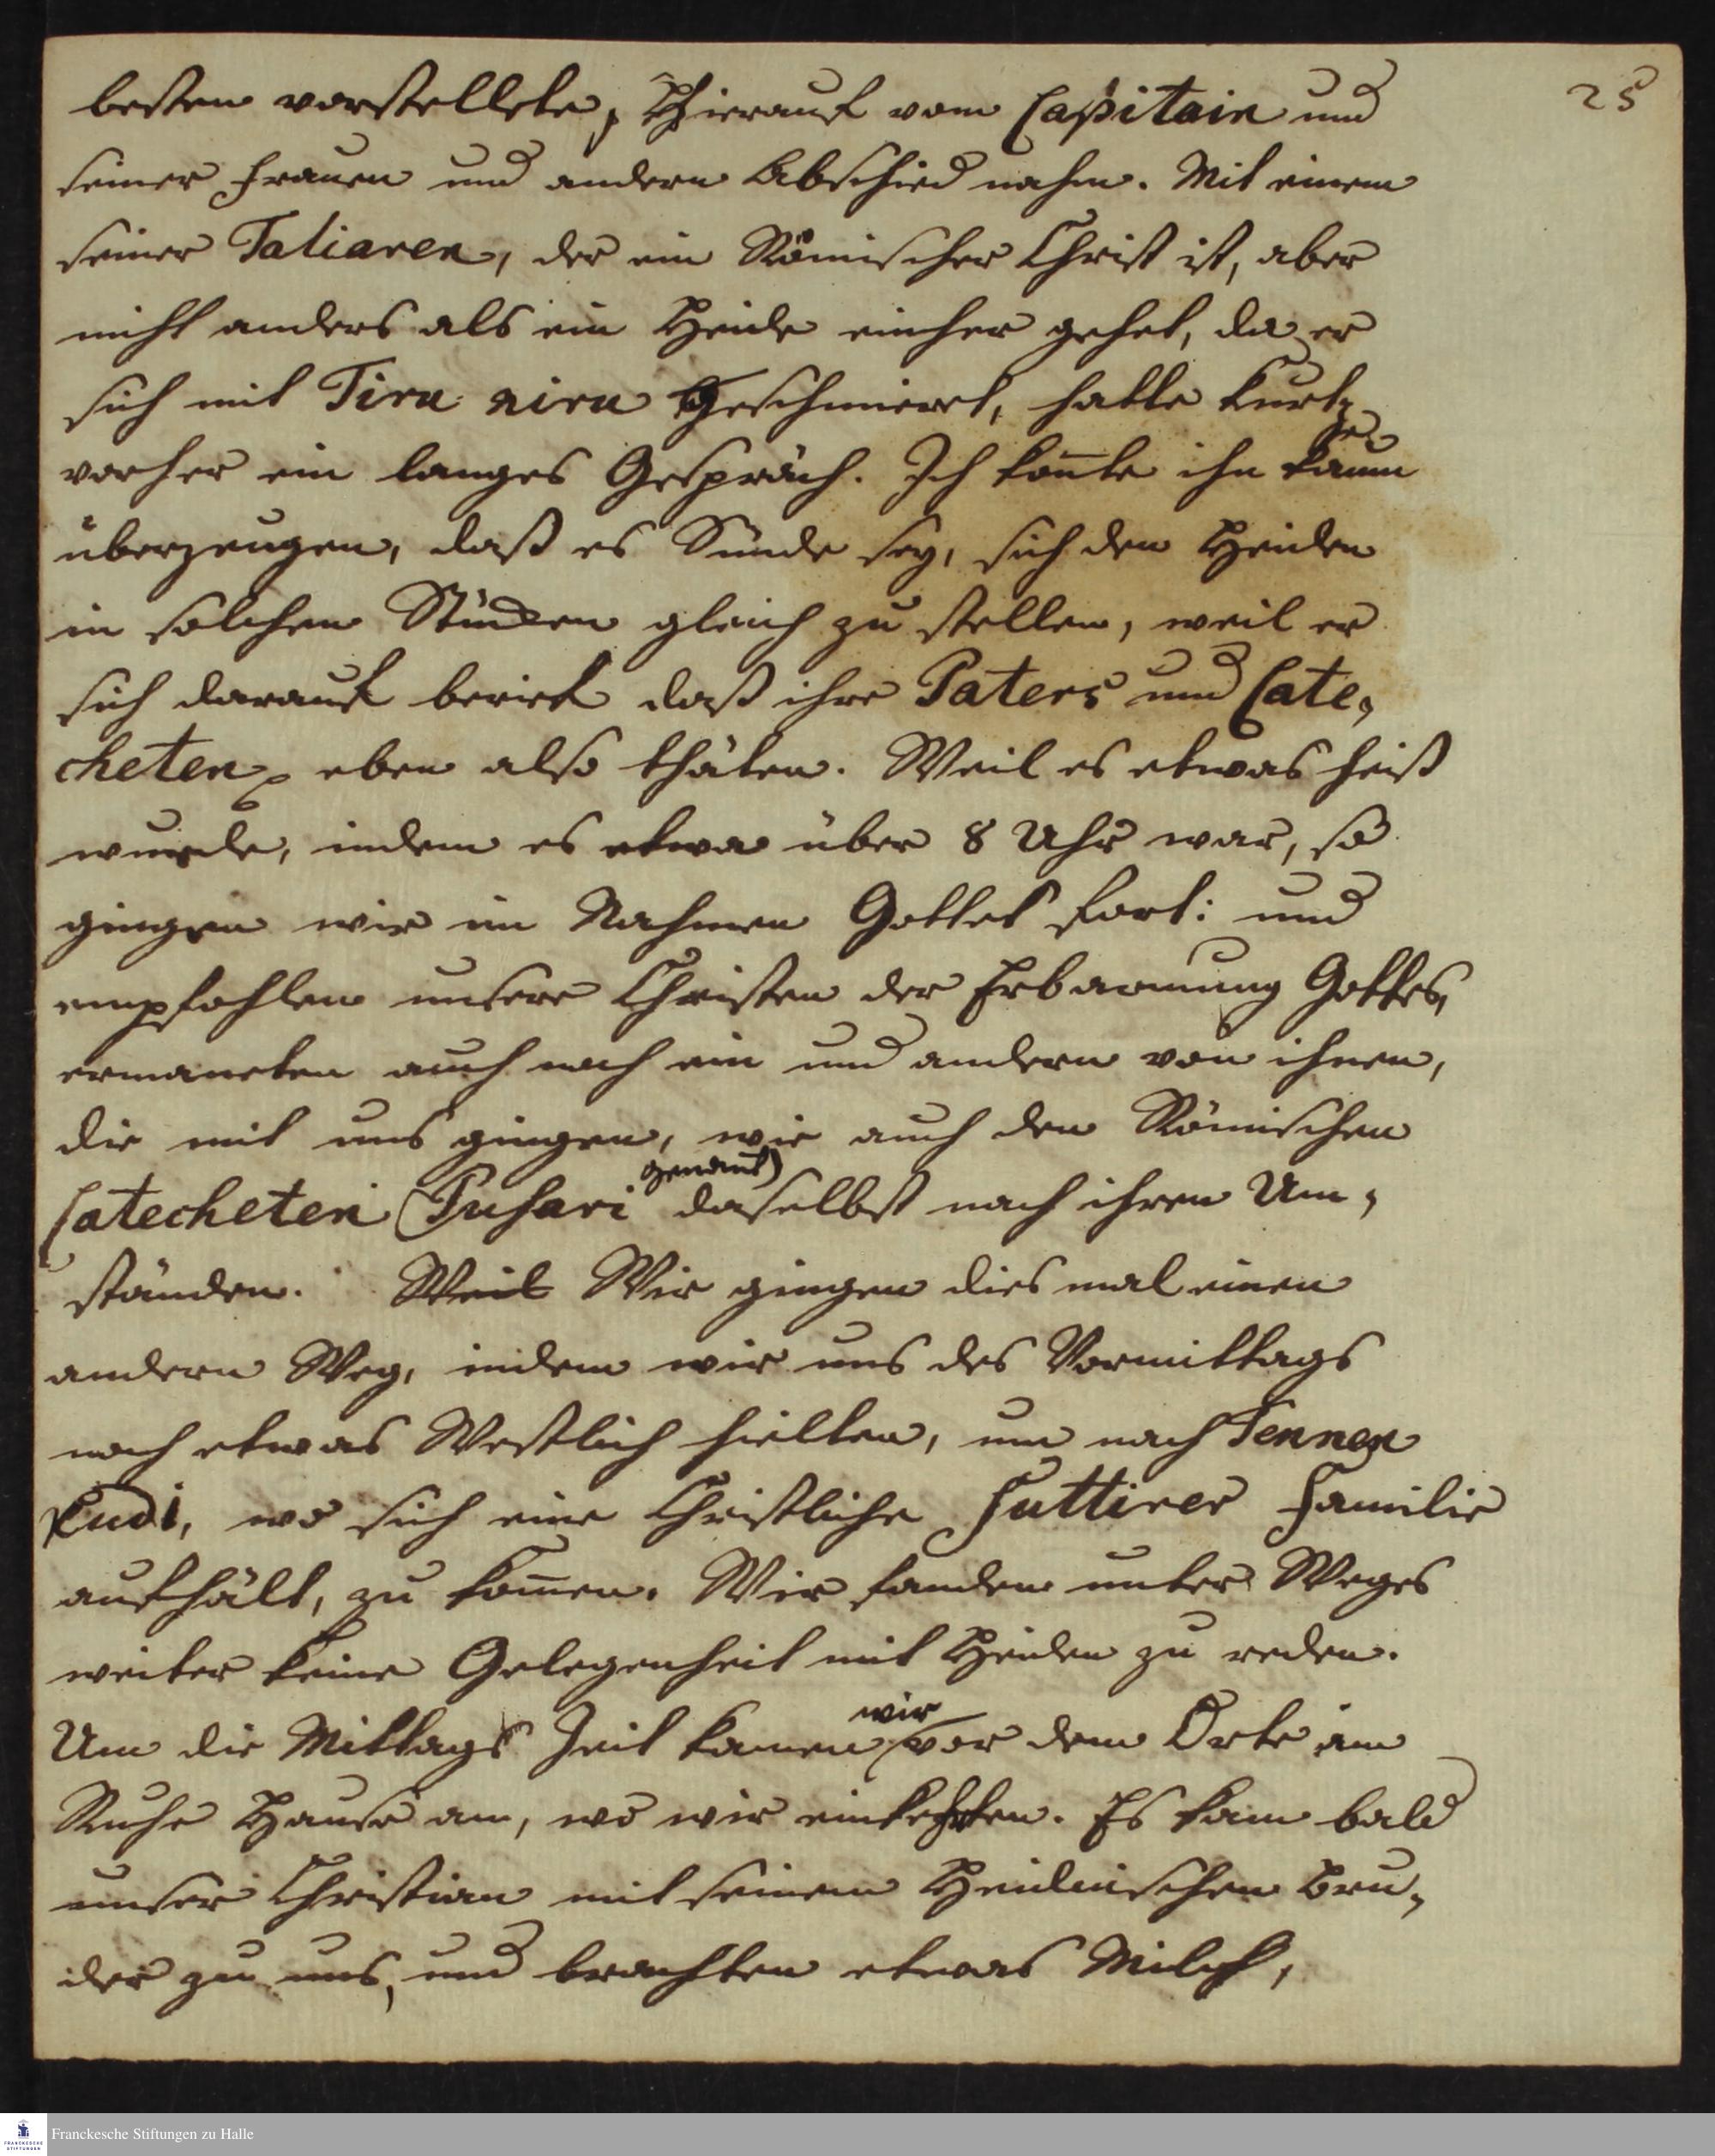 25
besten vorstellete, Hierauf vom Capitain und
seiner Frauen und andern Abschied nahm. Mit einem
seiner Taliaren, der ein Römischer Christ ist, aber
nicht anders als ein Heide einher gehet, da er
sich mit Tiru niru geschmiert, hatte kurtz
vorher ein langes Gespräch. Ich konte ihn kaum
überzeugen, daß es Sünde sey, sich den Heiden
in solchen Stücken gleich zu stellen, weil er
sich darauf berief daß ihre Paters und Cate,
cheten eben also thäten. Weil es etwas heiß
wurde, indem es etwa über 8 Uhr war, so
gingen wir im Nahmen Gottes fort: und
empfohlen unsere Christen der Erbarmung Gottes,
ermaneten auch noch ein und andern von ihnen,
die mit uns gingen, wie auch den Römischen
Catecheten (Pusari genant) daselbst nach ihren Um,
ständen. Weil Wir gingen dies mal einen
andern Weg, indem wir uns des Vormittags
noch etwas Westlich hielten, um nach Tennen
kudi, wo sich eine Christliche Suttirer Familie
aufhält, zu komen. Wir fanden unter Weges
weiter keine Gelegenheit mit Heiden zu reden.
Um die Mittags Zeit kamen wir vor dem Orte im
Ruhe Hause an, wo wir einkehrten. Es kam bald
unser Christian mit seinem Heidnischen Bru,
der zu uns, und brachten etwas Milch,
Franckesche Stiftungen zu Halle